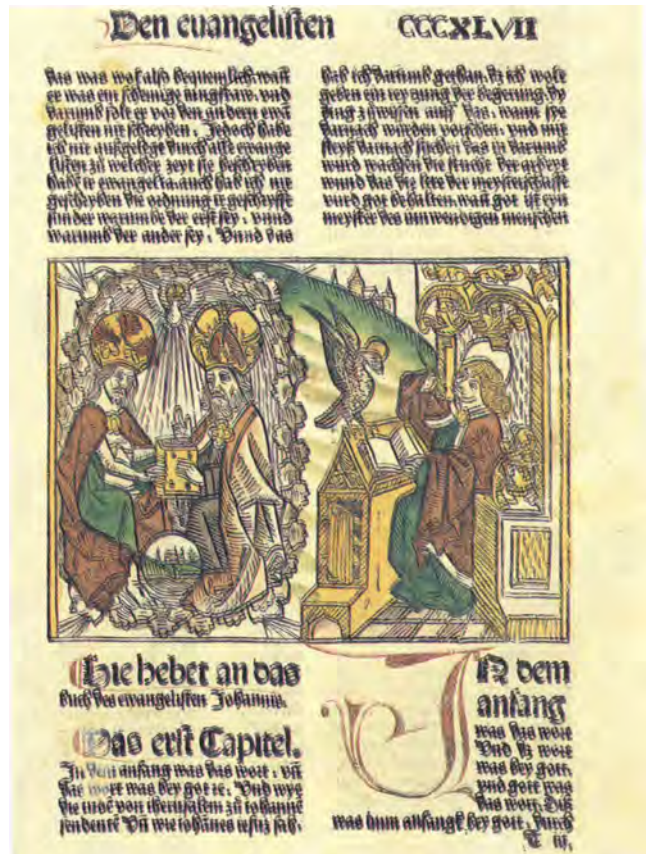 Den euangelisten CCCXLVII
das was wol also bequemlich. wañ
er was ein iungfraw. vnd
darumb solt er vor den andern ewã
gelisten nit schreyben. Jedoch habe
ich nit außgelegt durch alle ewange
listen zů welcher zeyt sie beschryben
habe ir ewangelia. auch hab ich nit
geschryben die ordnung ir geschrifft
sunder warumb der erst sey. vnnd
warumb der ander sey. Vnnd das
hab ich darumb gethan. dz ich wolt
geben ein der begerung. dye
ding zů wissen auff das. wann sye
darnach wurden vnd mit
fleyß darnach sůchen das in darumb
wurd wachsen die frucht der arbeyt
vnnd das die lere der meysterschafft
wurd got behalten. wañ got ist eyn
meyster des inwendigen menschen
Hie hebet an das
bůch des ewangelisten Johannis.
Das erst Capitel.
In dem anfang was das wort. vñ
das wort was bey gote. Vnd wye
die iudẽ von iherusalem zů iohannẽ
sendentẽ Vñ wie iohãnes iesũ sah.
IN dem
anfang
was das wort
Vnd dz wort
was bey gott.
vnd gott was
das wort. Diß
was inn anfangk bey gott. durch